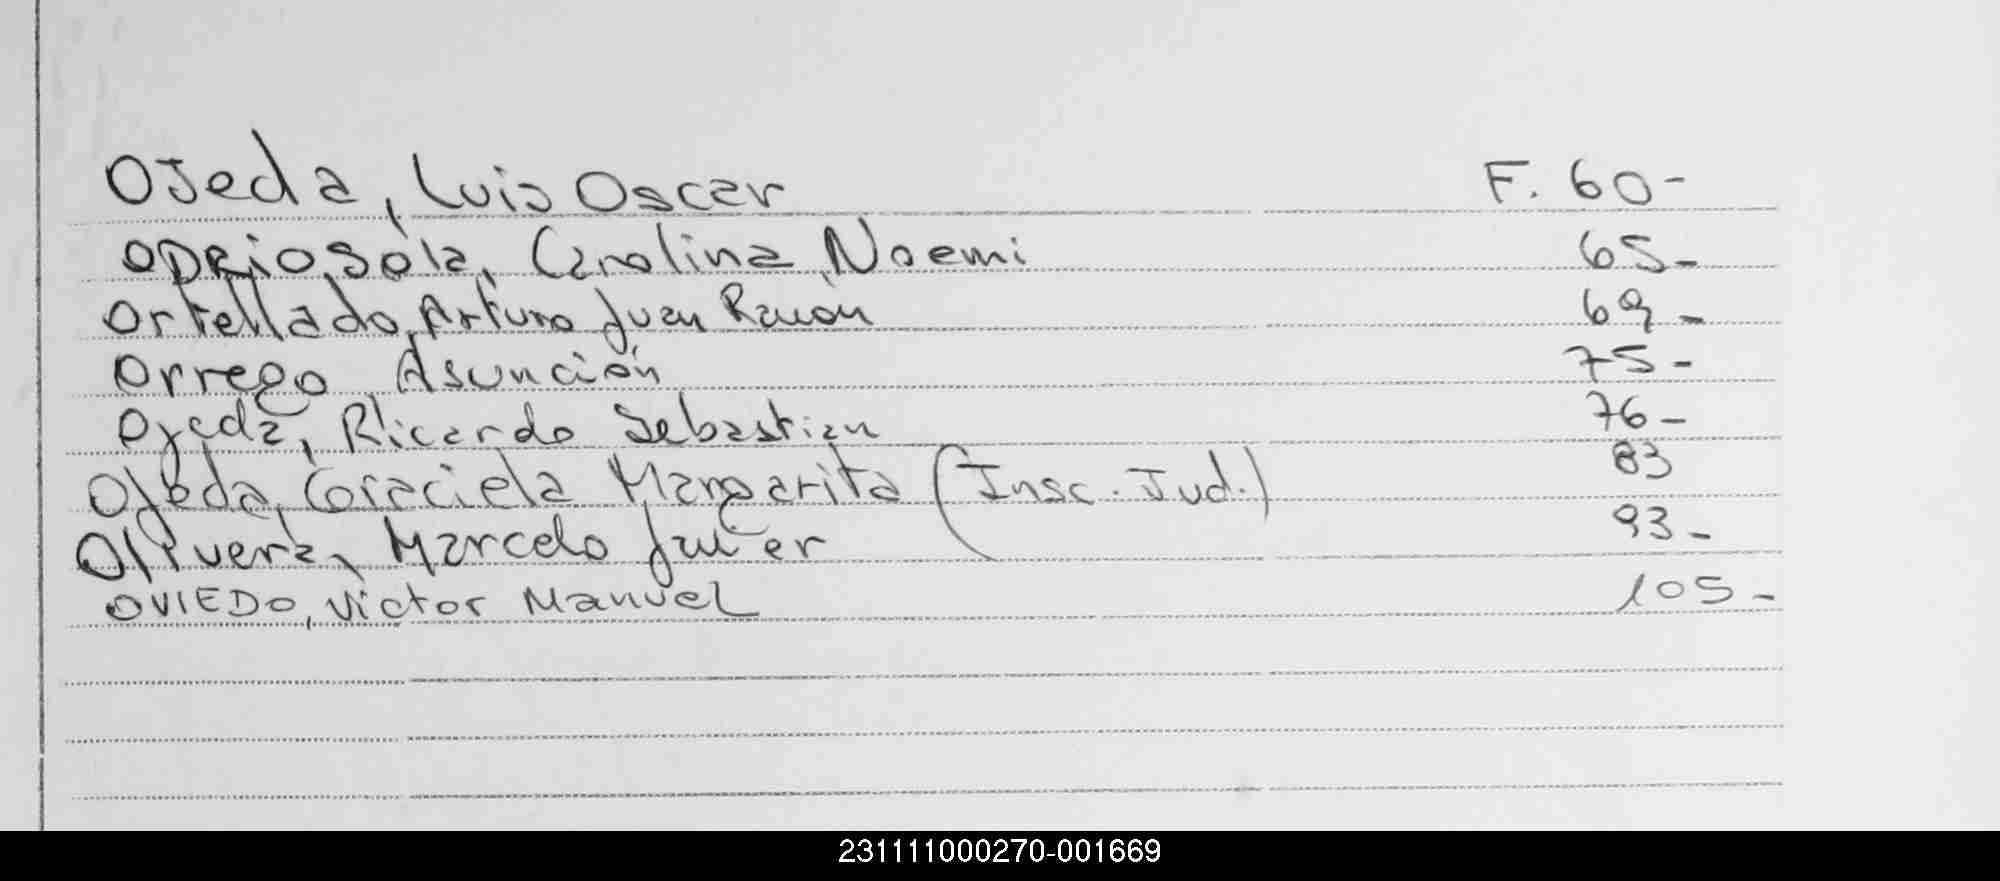 Ojeda, Luis Oscar F. 60-
ODRiosola, Carolina Noemi 65-
Ortellado, Arturo Juan Ramón 69-
Orrego Asunción 75-
Ojeda, Ricardo Sebastian 76-
Ojeda, Graciela Margarita (Insc. Jud.) 83
Olivera, Marcelo Javier 93-
OVIEDO, Victor Manuel 105-
231111000270-001669